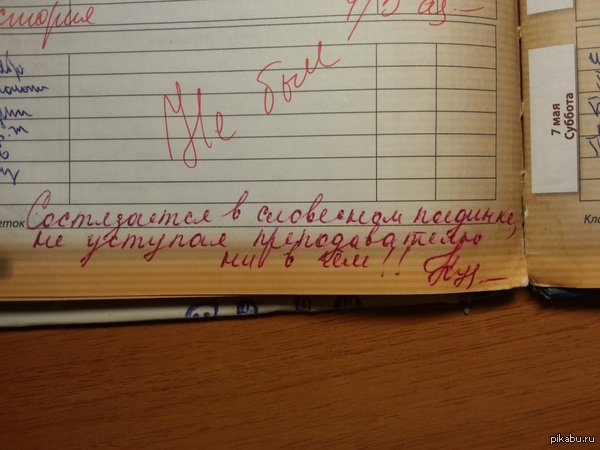 стория
Не был
7 мая
Суббота
еток
Состязается в словесном поединке,
не уступая преподавателю
ни в чем!!
Кл
pikabu.ru